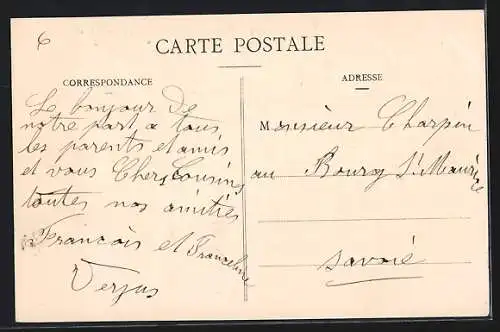 6
CARTE POSTALE
CORRESPONDANCE
Le bonjour de
notre part a tous
les parents et amis
et vous Chers Cousins
toutes nos amitiés
François et Franceline
Verjus
ADRESSE
Monsieur Charpin
au Bourg St Maurice
Savoie